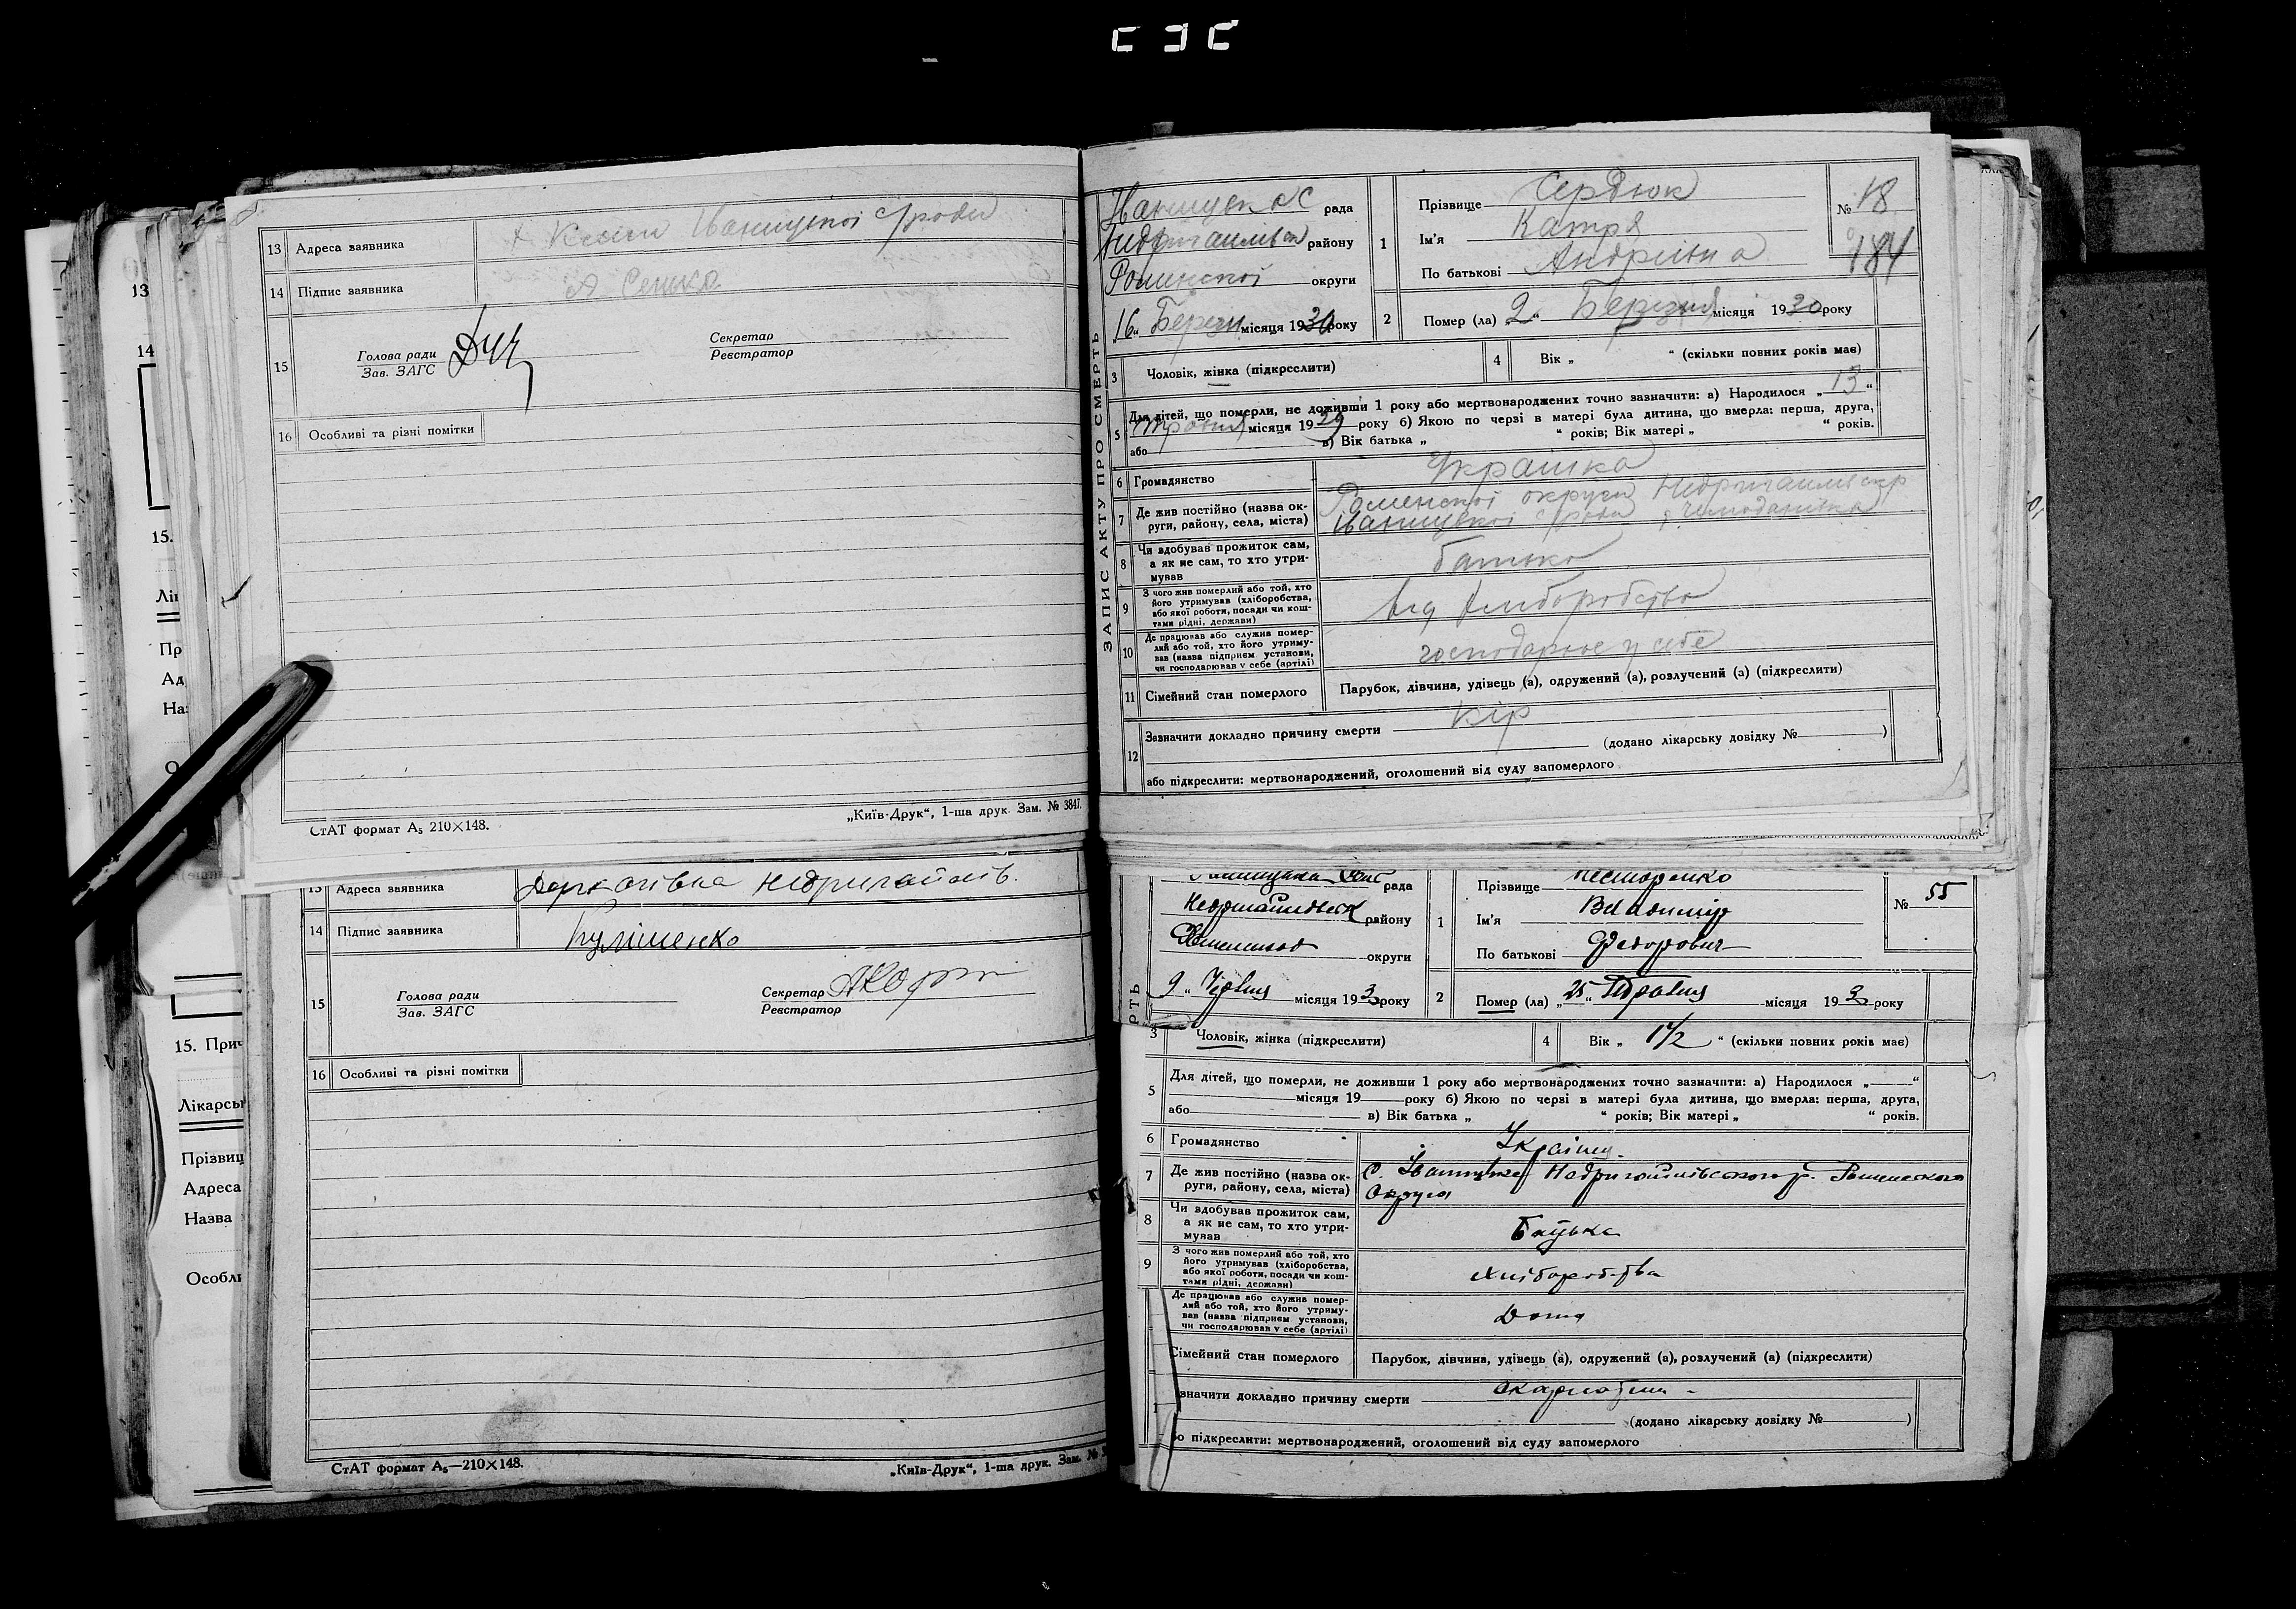 13 Адреса заявника
14 Підпис заявника
15 Голова ради
Зав. ЗАГС
Секретар
Реєстратор
16 Особливі та різні помітки
СтАТ формат А₅ 210×148.
„Київ-Друк“, 1-ша друк. Зам. № 3847.
13 Адреса заявника Недригайлів.
14 Підпис заявника Куліменко
15 Голова ради
Зав. ЗАГС
Секретар
Реєстратор
16 Особливі та різні помітки
СтАТ формат А₅—210×148.
„Київ-Друк“, 1-ша друк. Зам. №
13
14
15.
Пр
Ад
На
15. Прич
Лікарсь
Прізвищ
Адреса
Назва
Особл
ЗАПИС АКТУ ПРО СМЕРТЬ
рада
району
Роменской округи
16 „ Березн місяця 1930 року
1 Прізвище Сердюк
Ім'я Катря
По батькові Андріївна
№ 18
184
2 Помер (ла) „ 2 “ Березня місяця 1930 року
3 Чоловік, жінка (підкреслити)
4 Вік „ “ (скільки повних років має)
5 Для дітей, що померли, не доживши 1 року або мертвонароджених точно зазначити: а) Народилося „ 13 “
травня місяця 1929 року б) Якою по черзі в матері була дитина, що вмерла: перша, друга,
або в) Вік батька „ “ років; Вік матері „ “ років.
6 Громадянство Українка
7 Де жив постійно (назва ок- Роменской округи
руги, району, села, міста) Іваницкої с/ради
8 Чи здобував прожиток сам,
а як не сам, то хто утри- батько
мував
9 З чого жив померлий або той, хто
його утримував (хліборобства, від хліборобства
або якої роботи, посади чи кош-
тами рідні, держави)
10 Де працював або служив помер-
лий або той, хто його утриму- господарює у себе
вав (назва підприєм установи,
чи господарював у себе (артілі)
11 Сімейний стан померлого Парубок, дівчина, удівець (а), одружений (а), розлучений (а) (підкреслити)
12 Зазначити докладно причину смерти кір
(додано лікарську довідку № )
або підкреслити: мертвонароджений, оголошений від суду запомерлого
РТЬ
рада
району
округи
9 „ Червня місяця 193 року
1 Прізвище Несторенко
Ім'я Владимир
По батькові Федорович
№ 55
2 Помер (ла) „ 25 “ Травня місяця 193 року
3 Чоловік, жінка (підкреслити)
4 Вік „ 1½ “ (скільки повних років має)
5 Для дітей, що померли, не доживши 1 року або мертвонароджених точно зазначити: а) Народилося „ “
місяця 19 року б) Якою по черзі в матері була дитина, що вмерла: перша, друга,
або в) Вік батька „ “ років; Вік матері „ “ років.
6 Громадянство
7 Де жив постійно (назва ок- С.
руги, району, села, міста) Округи
8 Чи здобував прожиток сам,
а як не сам, то хто утри- Батька
мував
9 З чого жив померлий або той, хто
його утримував (хліборобства, хліборобства
або якої роботи, посади чи кош-
тами рідні, держави)
Де працював або служив помер-
лий або той, хто його утриму- Дома
вав (назва підприєм установи,
чи господарював у себе (артілі)
Сімейний стан померлого Парубок, дівчина, удівець (а), одружений (а), розлучений (а) (підкреслити)
значити докладно причину смерти скарлатина
(додано лікарську довідку № )
бо підкреслити: мертвонароджений, оголошений від суду запомерлого